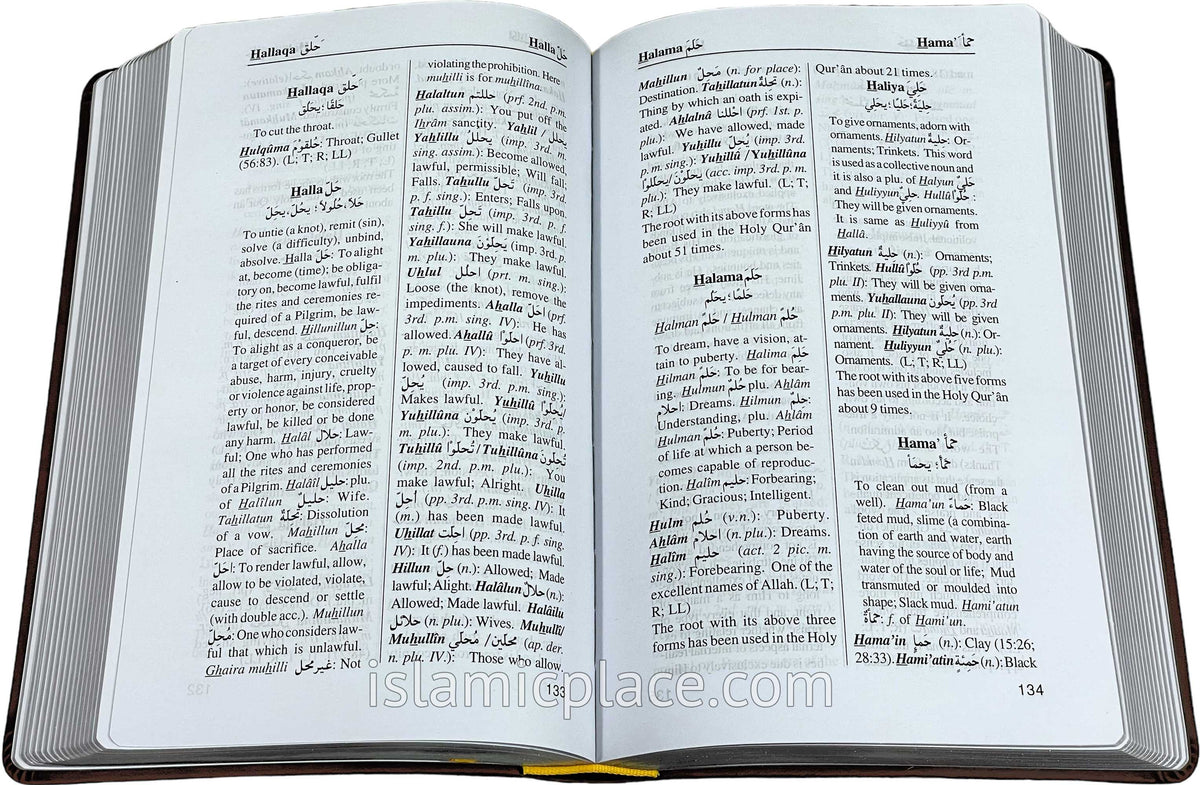 Hallaqa حَلّقَ
Halla حَلّ
Hallaqa حَلّق
حَلقًا؛ يحَلق
To cut the throat.
Hulqûma حُلقومَ: Throat; Gullet
(56:83). (L; T; R; LL)
Halla حَلّ
حَلاً، حُلُولاً؛ يحُلّ، يحِلّ
To untie (a knot), remit (sin),
solve (a difficulty), unbind,
absolve. Halla حَلّ: To alight
at, become (time); be obliga-
tory on, become lawful, fulfil
the rites and ceremonies re-
quired of a Pilgrim, be law-
ful, descend. Hillunillun حِلّ:
To alight as a conqueror, be
a target of every conceivable
abuse, harm, injury, cruelty
or violence against life, prop-
erty or honor, be considered
lawful, be killed or be done
any harm. Halâl حلال: Law-
ful; One who has performed
all the rites and ceremonies
of a Pilgrim. Halâîl حليل: plu.
of Halîlun حليلٌ: Wife.
Tahillatun تحلّة: Dissolution
of a vow. Mahillun محلّ:
Place of sacrifice. Ahalla
احَلّ: To render lawful, allow,
allow to be violated, violate,
cause to descend or settle
(with double acc.). Muhillun
مُحلّ: One who considers law-
ful that which is unlawful.
Ghaira muhilli غيرمحل: Not
violating the prohibition. Here
muhilli is for muhillina.
Halaltun حللتم (prf. 2nd. p.m.
plu. assim.): You put off the
Ihrâm sanctity. Yahlil يحلل /
Yahlillu يحلل (imp. 3rd. m.
sing. assim.): Become allowed,
lawful, permissible; Will fall;
Falls. Tahullu تَحلّ (imp. 3rd.
p. f. sing.): Enters; Falls upon.
Tahillu تَحلّ (imp. 3rd. p. f.
sing. f.): She will make lawful.
Yahillauna يَحلوّنَ (imp. 3rd. p.
m. plu.): They make lawful.
Uhlul احلل (prt. m. sing.):
Loose (the knot), remove the
impediments. Ahalla احَلّ (prf.
3rd. p.m. sing. IV): He has
allowed. Ahallû احلّوا (prf. 3rd.
p. m. plu. IV): They have al-
lowed, caused to fall. Yuhillu
يُحلّ (imp. 3rd. p.m. sing.):
Makes lawful. Yuhillû يُحلوّا/
Yuhillûna يُحلوّنَ (imp. 3rd. p.
m. plu.): They make lawful.
Tuhillû تُحلوّا/Tuhillûna تُحلونَ
(imp. 2nd. p.m. plu.): You
make lawful; Alright. Uhilla
أُحِلّ (pp. 3rd. p.m. sing. IV): It
(m.) has been made lawful.
Uhillat احِلّت (pp. 3rd. p. f. sing.
IV): It (f.) has been made lawful.
Hillun حِلّ (n.): Allowed; Made
lawful; Alight. Halâlun حلالٌ (n.):
Allowed; Made lawful. Halâilu
حلائل (n. plu.): Wives. Muhullî/
Muhullîn محلين/ مُحلي (ap. der.
n. plu. IV.): Those who allow.
133
Halama حَلَمَ
Hama’ حمأ
Mahillun مَحِلّ (n. for place):
Destination. Tahillatun تحلّة (n.):
Thing by which an oath is expi-
ated. Ahlalnâ احْللنا (prf. 1st. p.
plu.): We have allowed, made
lawful. Yuhillu يُحِلّ (imp. 3rd.
p. m. sing.): Yuhillû / Yuhillûna
يحلوّن/يحللوا (acc. imp. 3rd. p. m.
plu.): They make lawful. (L; T;
R; LL)
The root with its above forms has
been used in the Holy Qur’ân
about 51 times.
Halama حَلَمَ
حَلمًا؛ يحلُم
Halman حَلمٌ / Hulman حُلمٌ
To dream, have a vision, at-
tain to puberty. Halima حَلِمَ
Hilman حَلمٌ: To be for bear-
ing. Hulmun حُلمٌ plu. Ahlâm
احلام: Dreams. Hilmun حِلمٌ:
Understanding, plu. Ahlâm
Hulman حُلمٌ: Puberty; Period
of life at which a person be-
comes capable of reproduc-
tion. Halîm حليم: Forbearing;
Kind; Gracious; Intelligent.
Hulm حُلم (v.n.): Puberty.
Ahlâm احلام (n. plu.): Dreams.
Halîm حليم (act. 2 pic. m.
sing.): Forebearing. One of the
excellent names of Allah. (L; T;
R; LL)
The root with its above three
forms has been used in the Holy
Qur’ân about 21 times.
Haliya حَلِيَ
حِليَةً؛ حَليًا؛ يحلي
To give ornaments, adorn with
ornaments. Hilyatun حليةٌ: Or-
naments; Trinkets. This word
is used as a collective noun and
it is also a plu. of Halyun حَليٌ
and Huliyyun حِليٌ. Hullû حُلوّا:
They will be given ornaments.
It is same as Huliyyû from
Hallâ.
Hilyatun حليةٌ (n.): Ornaments;
Trinkets. Hullû حُلوّا (pp. 3rd p.m.
plu. II): They will be given orna-
ments. Yuhallauna يُحلون (pp. 3rd
p.m. plu. II): They will be given
ornaments. Hilyatun حليةٌ (n.): Or-
nament. Huliyyun حُليٌّ (n. plu.):
Ornaments. (L; T; R; LL)
The root with its above five forms
has been used in the Holy Qur’ân
about 9 times.
Hama’ حمأ
حمأ؛ يحمَأ
To clean out mud (from a
well). Hama’un حَماءً: Black
feted mud, slime (a combina-
tion of earth and water, earth
having the source of body and
water of the soul or life; Mud
transmuted or moulded into
shape; Slack mud. Hami’atun
حمأةً: f. of Hami’un.
Hama’in حَمإٍ (n.): Clay (15:26;
28:33). Hami’atin حَمِئَةٍ (n.): Black
134
islamicplace.com